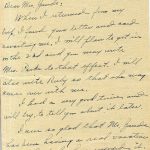 Mr. Jamele:
When I returned from my
trip I found your letter and card
awaiting me. I will plan to get in
on the and you may write
Mr. Parks to that effect. I will
also write Rudy so that she may
come over with me.
I had a very good time and
will try to tell you about it later.
I am so glad that Mr. Jamele
has been having a real vacation